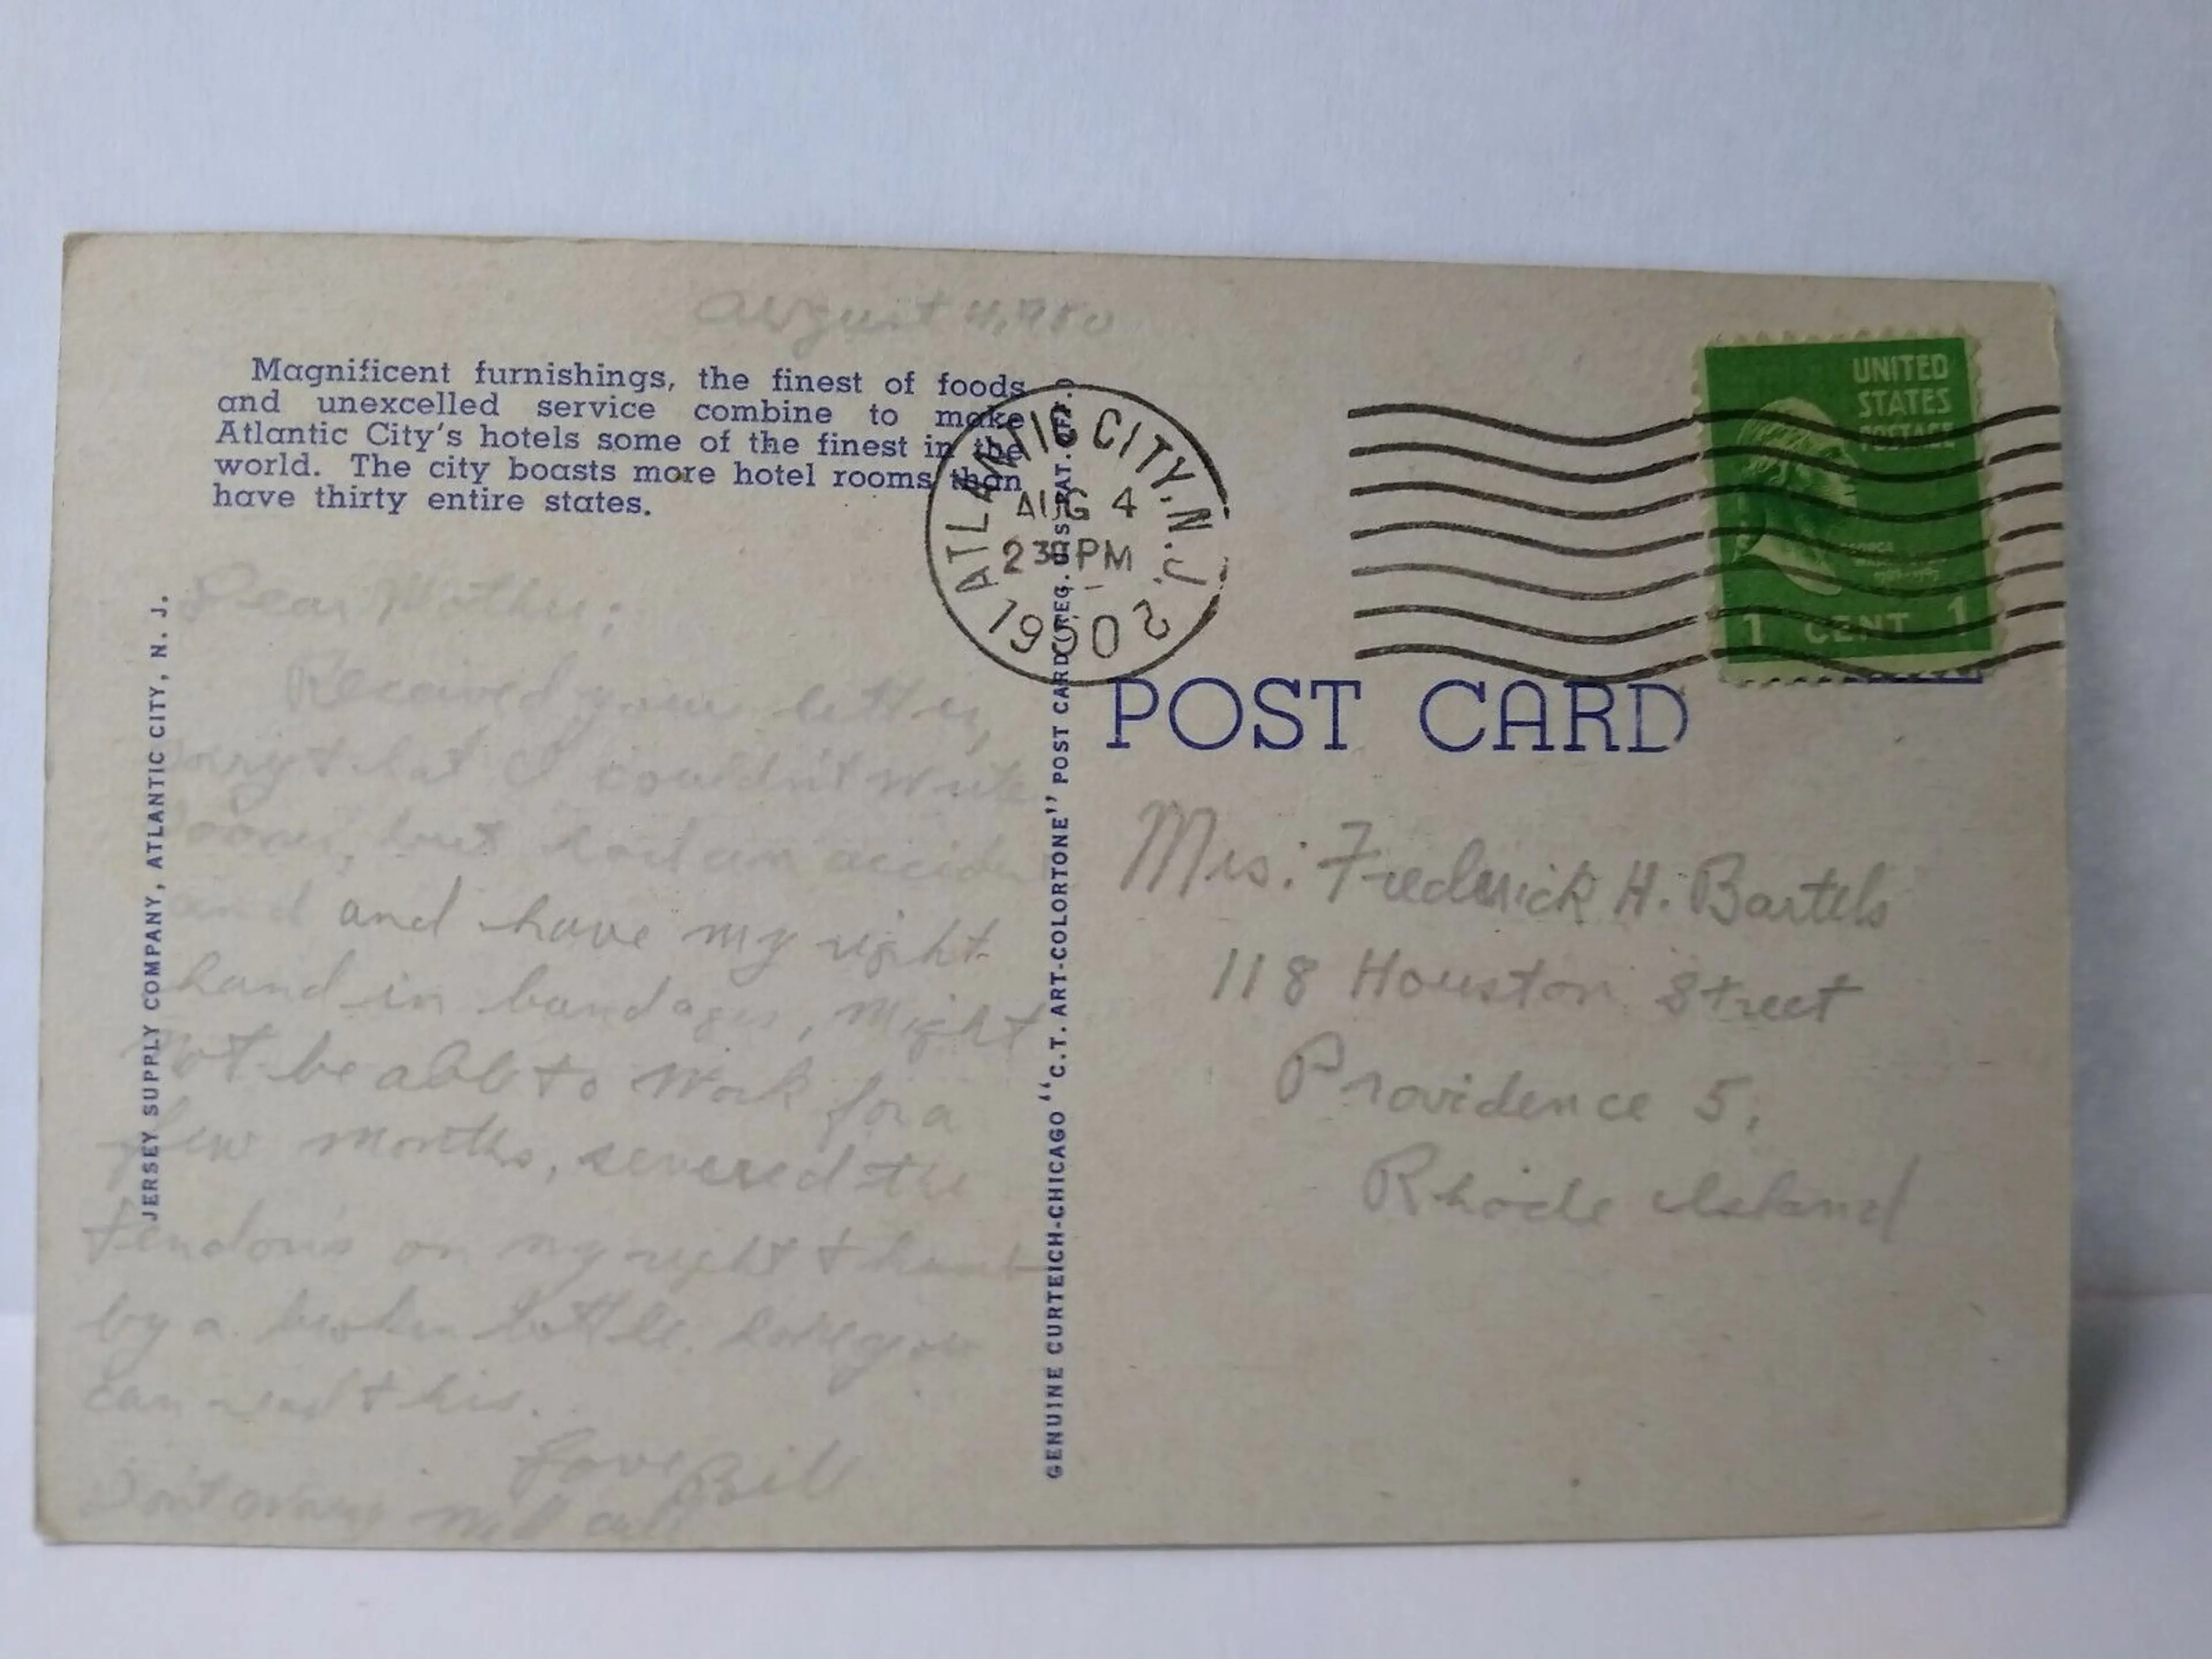 August 4, 1950
Magnificent furnishings, the finest of foods
and unexcelled service combine to make
Atlantic City's hotels some of the finest in the
world. The city boasts more hotel rooms than
have thirty entire states.
JERSEY SUPPLY COMPANY, ATLANTIC CITY, N. J.
Dear Mother;
Received your letter,
sorry that I couldn't write
sooner, but had an acciden
and and have my right
hand in bandages, might
not be able to work for a
few months, severed the
tendons on my right thumb
by a broken bottle. Hope you
can read this.
Love Bill
Don't worry will call
GENUINE CURTEICH-CHICAGO "C.T. ART-COLORTONE" POST CARD (REG. U.S. PAT. OFF.)
ATLANTIC CITY, N.J. 2
AUG 4
230 PM
1950
UNITED
STATES
POSTAGE
1 CENT 1
POST CARD
Mrs: Frederick H. Bartels
118 Houston Street
Providence 5,
Rhode Island